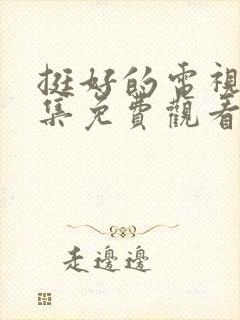 挺好的電視
集免費觀看
走邊邊